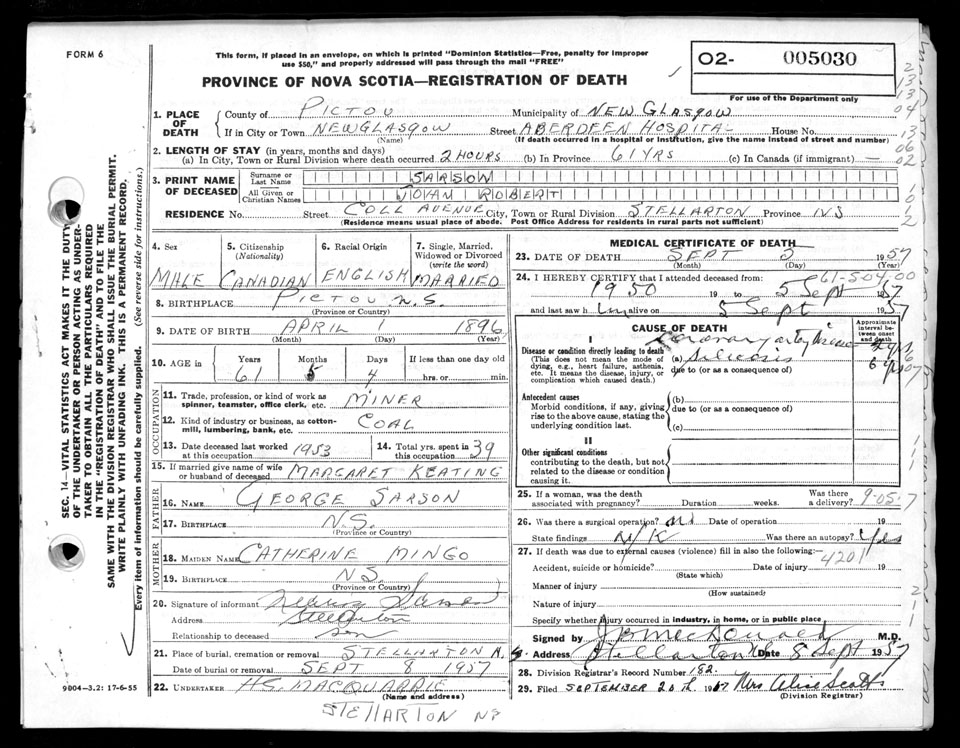 FORM 6
This form, if placed in an envelope, on which is printed "Dominion Statistics—Free, penalty for improper
use $50," and properly addressed will pass through the mail "FREE"
PROVINCE OF NOVA SCOTIA—REGISTRATION OF DEATH
O2- 005030
For use of the Department only
1. PLACE OF DEATH
County of PICTOU Municipality of NEW GLASGOW
If in City or Town NEW GLASGOW Street ABERDEEN HOSPITAL House No.
(Name) (If death occurred in a hospital or institution, give the name instead of street and number)
2. LENGTH OF STAY (in years, months and days)
(a) In City, Town or Rural Division where death occurred 2 HOURS (b) In Province 61 YRS (c) In Canada (if immigrant) —
3. PRINT NAME OF DECEASED
Surname or Last Name SARSON
All Given or Christian Names ROBERT
RESIDENCE No. Street COLL AVENUE City, Town or Rural Division STELLARTON Province NS
(Residence means usual place of abode. Post Office Address for residents in rural parts not sufficient)
4. Sex MALE
5. Citizenship (Nationality) CANADIAN
6. Racial Origin ENGLISH
7. Single, Married, Widowed or Divorced (write the word) MARRIED
8. BIRTHPLACE PICTOU N.S.
(Province or Country)
9. DATE OF BIRTH APRIL 1 1896
(Month) (Day) (Year)
10. AGE in Years 61 Months 5 Days 4 If less than one day old
hrs. or min.
OCCUPATION
11. Trade, profession, or kind of work as spinner, teamster, office clerk, etc. MINER
12. Kind of industry or business, as cotton-mill, lumbering, bank, etc. COAL
13. Date deceased last worked at this occupation 1953
14. Total yrs. spent in this occupation 39
15. If married give name of wife or husband of deceased MARGARET KEATING
FATHER
16. NAME GEORGE SARSON
17. BIRTHPLACE N.S.
(Province or Country)
MOTHER
18. MAIDEN NAME CATHERINE MINGO
19. BIRTHPLACE NS
(Province or Country)
20. Signature of informant
Address Stellarton
Relationship to deceased son
21. Place of burial, cremation or removal STELLARTON N.S.
Date of burial or removal SEPT 8 1957
22. UNDERTAKER H.S. MACQUARRIE
(Name and address)
STELLARTON NS
9004—3.2: 17-6-55
MEDICAL CERTIFICATE OF DEATH
23. DATE OF DEATH SEPT 5 1957
(Month) (Day) (Year)
61-504-00
24. I HEREBY CERTIFY that I attended deceased from:
1950 19 to 5 Sept 1957
and last saw h im alive on 5 Sept 1957
CAUSE OF DEATH
Approximate interval between onset and death
I
Disease or condition directly leading to death
(This does not mean the mode of dying, e.g., heart failure, asthenia, etc. It means the disease, injury, or complication which caused death.)
Coronary
(a) Silicosis
due to (or as a consequence of)
Antecedent causes
Morbid conditions, if any, giving rise to the above cause, stating the underlying condition last.
(b)
due to (or as a consequence of)
(c)
II
Other significant conditions
contributing to the death, but not related to the disease or condition causing it.
25. If a woman, was the death associated with pregnancy? Duration weeks. Was there a delivery?
9-05-7
26. Was there a surgical operation? Date of operation 19
State findings N/K Was there an autopsy? Yes
27. If death was due to external causes (violence) fill in also the following:—
4201
Accident, suicide or homicide? Date of injury 19
(State which)
Manner of injury
(How sustained)
Nature of injury
Specify whether injury occurred in industry, in home, or in public place
Signed by M.D.
Address Stellarton Date 8 Sept 1957
28. Division Registrar's Record Number 182.
29. Filed SEPTEMBER 20th 1957 Mrs Alice Scott
(Division Registrar)
SEC. 14—VITAL STATISTICS ACT MAKES IT THE DUTY
OF THE UNDERTAKER OR PERSON ACTING AS UNDER-
TAKER TO OBTAIN ALL THE PARTICULARS REQUIRED
IN THE "REGISTRATION OF DEATH" AND TO FILE THE
SAME WITH THE DIVISION REGISTRAR WHO SHALL ISSUE THE BURIAL PERMIT.
WRITE PLAINLY WITH UNFADING INK. THIS IS A PERMANENT RECORD.
Every item of information should be carefully supplied. (See reverse side for instructions.)